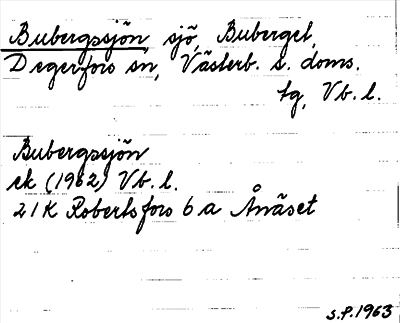 Bubergssjön, sjö, Buberget,
Degerfors sn, Västerb. s. doms.
tg, Vb. l.
Bubergssjön
ek (1962) Vb. l.
21K Robertsfors 6 a Ånäset
S.P. 1963